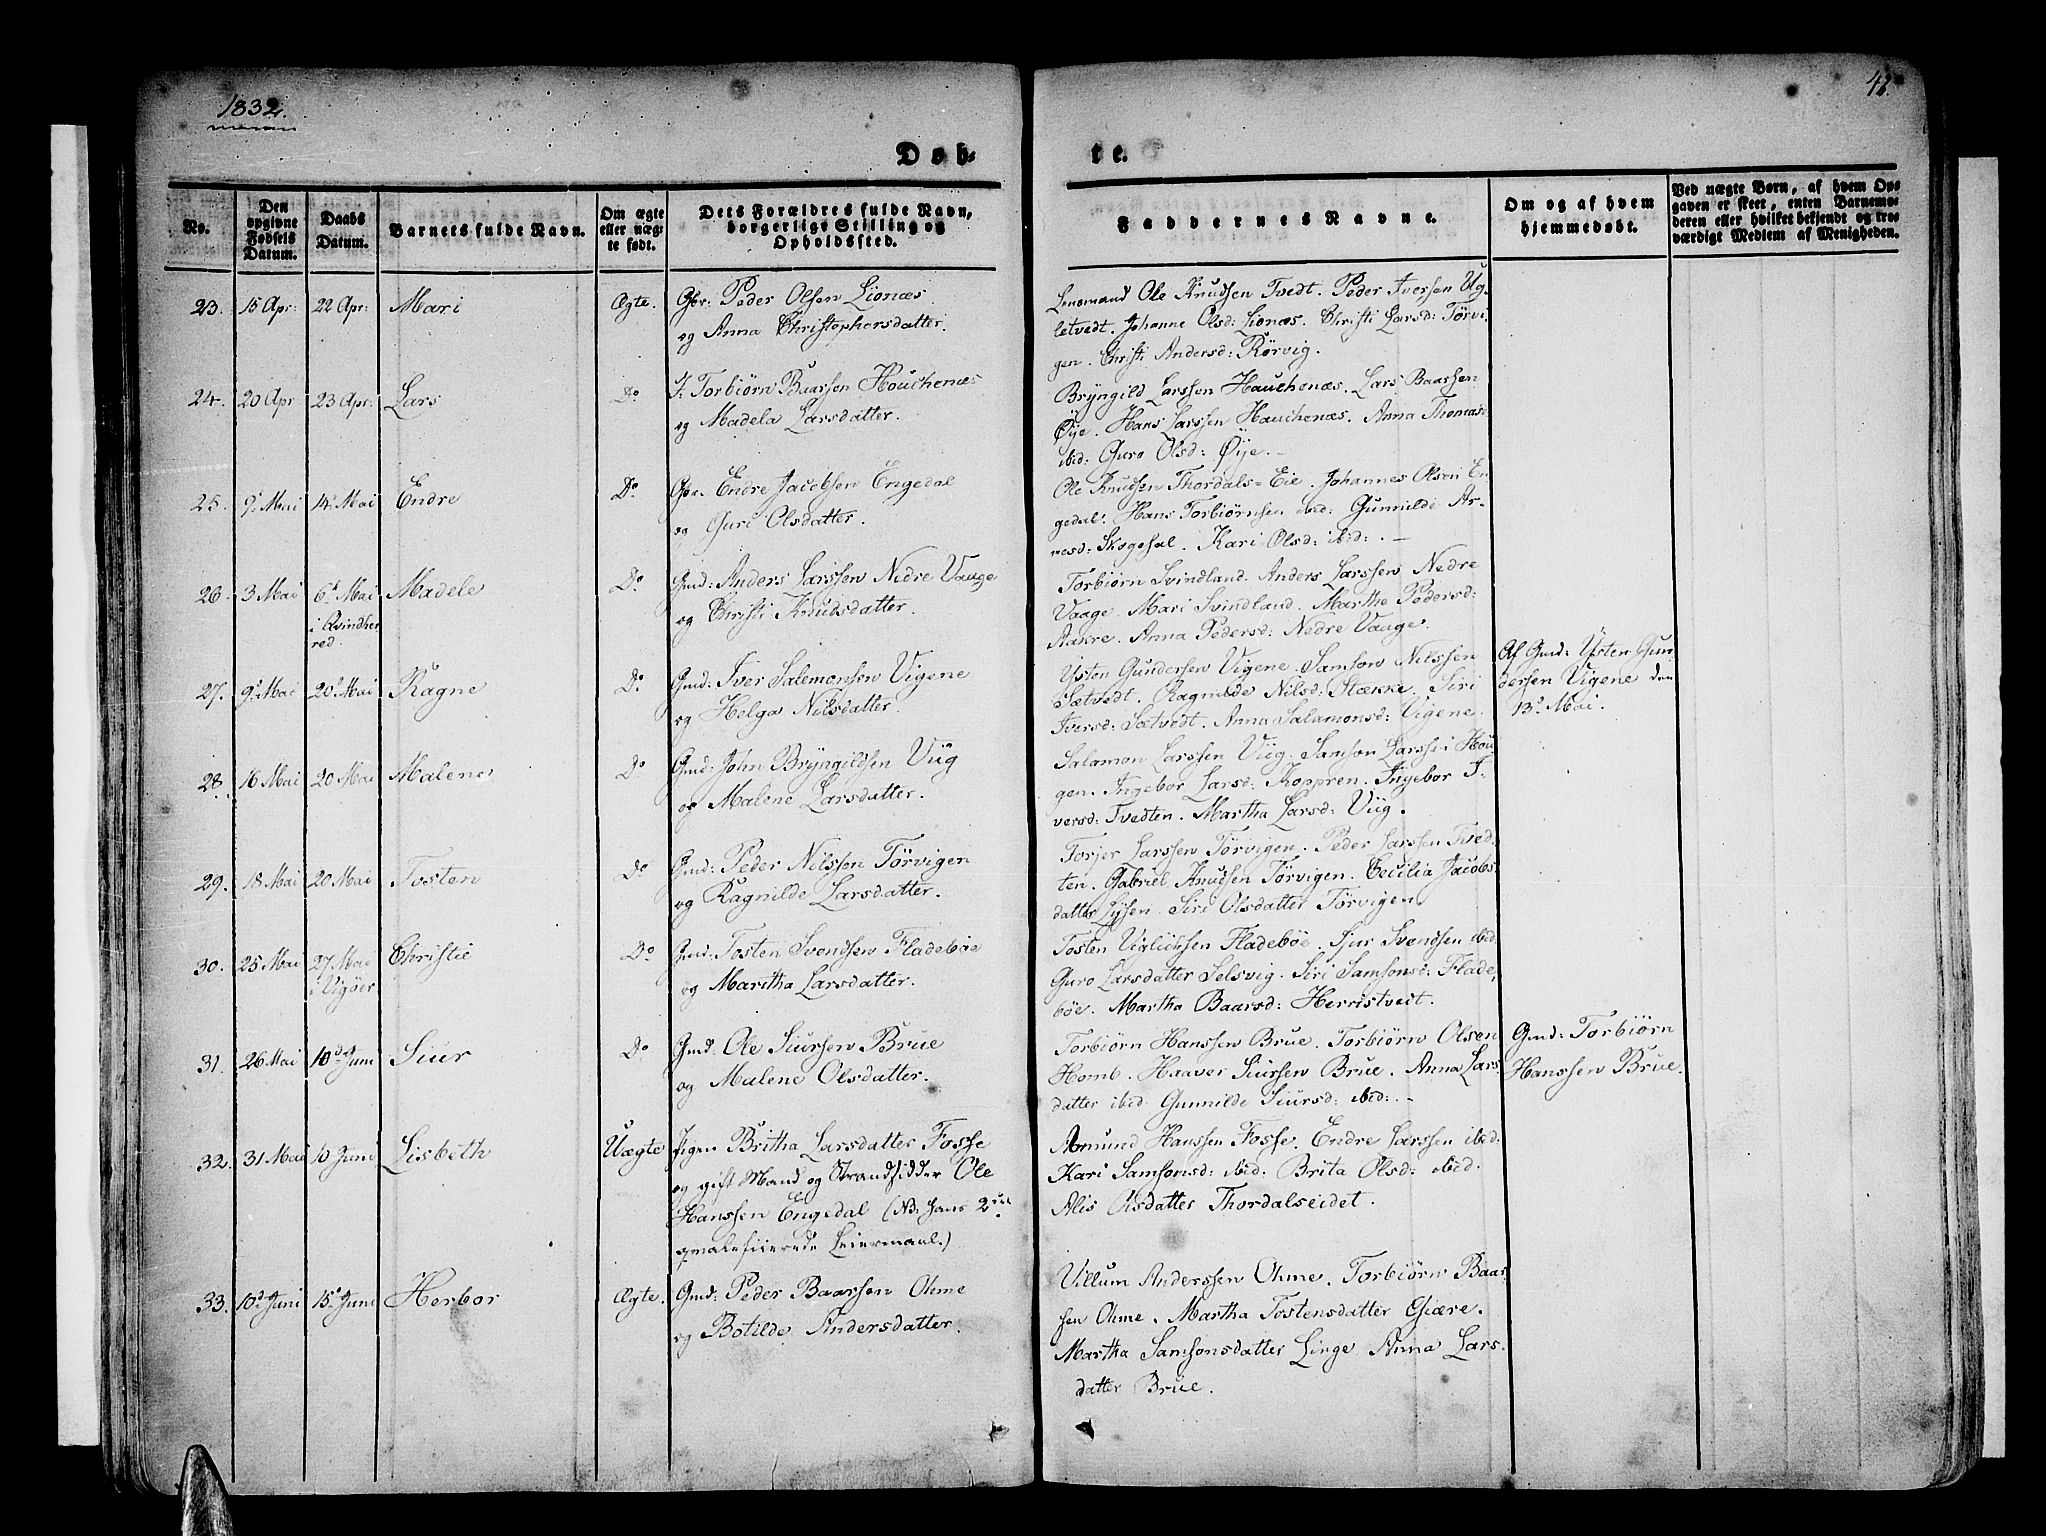 1832.
42.
Døb-
te.
No.
Den opgivne Fødsels Datum.
Daabs Datum.
Barnets fulde Navn.
Om ægte eller uægte født.
Dets Forældres fulde Navn, borgerligt Stilling og Opholdssted.
Faddernes Navne.
Om og af hvem hjemmedøbt.
Ved uægte Børn, af hvem Opgaven er skeet, enten Barnemoderen eller hvilket bekjendt og troværdigt Medlem af Menigheden.
23. 15 Apr: 22 Apr: Mari Ægte. Gbr: Peder Olsen Lionæs
og Anna Christophersdatter.
Lensmand Ole Knudsen Tvedt. Peder Iversen Ug-
letvedt. Johanne Olsd: Lionæs. Christi Larsd: Törvi
gen. Christi Andersd: Rörvig.
24. 20 Apr 23 Apr: Lars Do. Torbiørn Baarsen Houchenæs
og Madela Larsdatter.
Bryngild Larssen Hauchenæs. Lars Baarsen
Øye. Hans Larssen Hauchenæs. Anna Thomasd
ibid: Guro Olsd: Øye.
25. 9 Mai 14 Mai Endre Do. Gbr. Endre Jacobsen Engedal
og Guri Olsdatter.
Ole Knudsen Thordals-Eie. Johannes Olsen En
gedal. Hans Torbiørnsen ibid: Gunnilde Ar-
nesd: Skogesæl. Kari Olsd: ibid:.
26. 3 Mai 6 Mai Madele Do. Gmd: Anders Larssen Nedre Vaage
i Qvindher
red.
og Christi Knudsdatter.
Torbiörn Svindland. Anders Larssen Nedre
Vaage. Mari Svindland. Marthe Pedersd:
Aakre. Anna Pedersd: Nedre Vaage.
27. 9 Mai 20 Mai Ragne Do. Gmd: Iver Salemonsen Vigene
og Helga Nilsdatter.
Ysten Gundersen Vigene. Samson Nilssen
Sætvedt. Ragnilde Nilsd: Stække. Siri
Iversd: Sætvedt. Anna Salamonsd: Vigene.
Af Gmd: Ysten Gun
dersen Vigene den
13 Mai.
28. 16 Mai 20 Mai Malene Do Gmd: John Bryngildsen Viig
og Malene Larsdatter.
Salamon Larssen Viig. Samson Larssen Hou
gen. Ingebor Larsd: Koppren. Ingebor I-
versd: Tvedten. Martha Larsd: Viig.
29. 18 Mai 20 Mai Tosten Do Gmd: Peder Nilssen Törvigen
og Ragnilde Larsdatter.
Torjer Larssen Törvigen. Peder Larssen Tved
ten. Gabriel Knudsen Törvigen. Cecilia Jacobs
datter Lysen. Siri Olsdatter Törvigen
30. 25 Mai 27 Mai Christie Do. Gmd: Tosten Svendsen Fladebøe
i Vigöer
og Maritha Larsdatter.
Tosten Viglicksen Fladebøe. Sjur Svendsen ibid.
Guro Larsdatter Selsvig. Siri Samsonsd: Flade,
böe. Martha Baarsd: Herristveit.
31. 26 Mai 10 Juni Siur Do Gmd. Ole Siursen Brue
og Malene Olsdatter.
Torbiörn Hanssen Brue. Torbiörn Olsen
Homb. Haaver Siursen Brue. Anna Lars
datter ibid Gunnilde Siursd: ibid:.
Gmd: Torbiörn
Hanssen Brue.
32. 31 Mai 10 Juni Lisbeth Uægte Pigen Britha Larsdatter Fosse
og gift Mand og Strandsidder Ole
Hanssen Engedal (NB: hans 2det
qvalificerede Leiermaal.)
Amund Hanssen Fosse. Endre Larssen ibid:
Kari Samsonsd: ibid: Brita Olsd: ibid.
Alis Olsdatter Thordalseidet.
33. 10 Juni 15 Juni Herbor Ægte. Gmd: Peder Baarsen Ohme
og Botilde Andersdatter.
Villum Anderssen Ohme. Torbiörn Baar
sen Ohme. Martha Tostensdatter Giære.
Martha Samsonsdatter Linge. Anna Lars.
datter Brue.